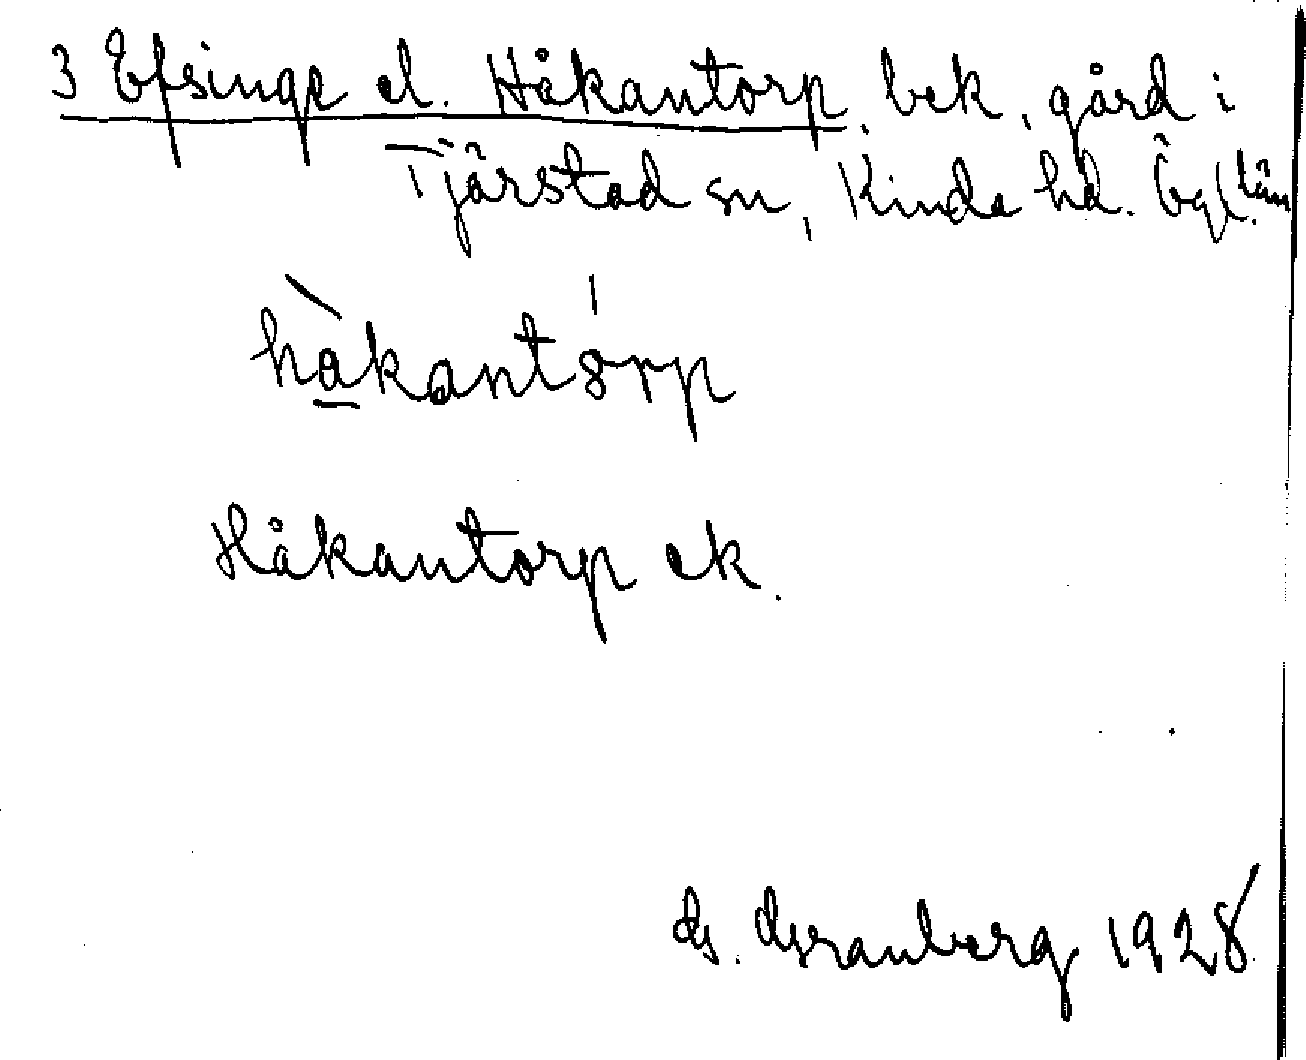 3 Efsinge el. Håkantorp, bek, gård i
Tjärstad sn, Kinda hd. Ögl. län
hàkantórp
Håkantorp ek.
G. Granberg 1928